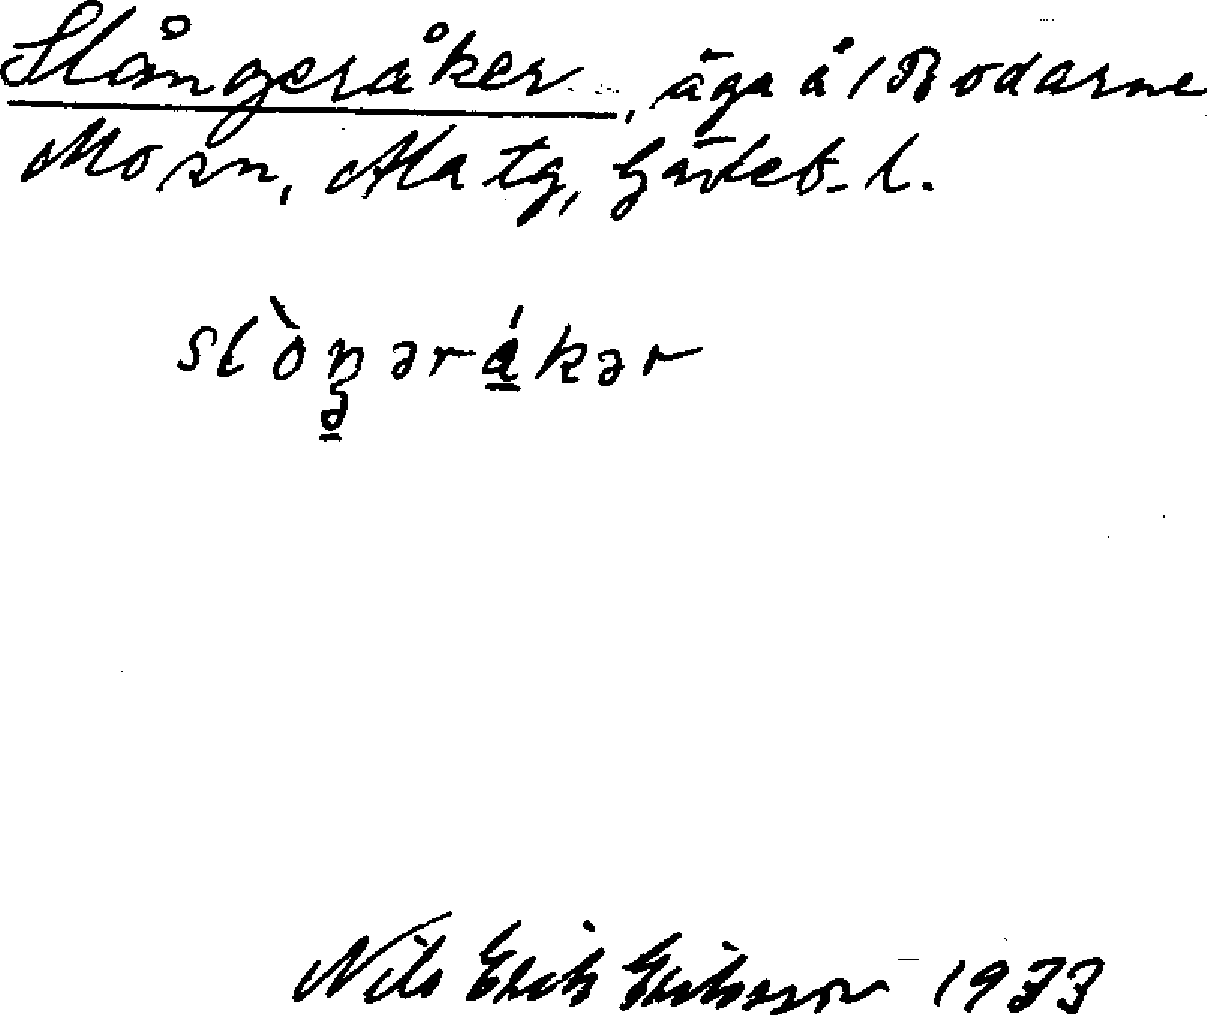 Slångeråker, äga å 1 Bodarne
Mosn, Matg, Gävleb. l.
slòŋərákər
Nils Erik Eriksson 1933